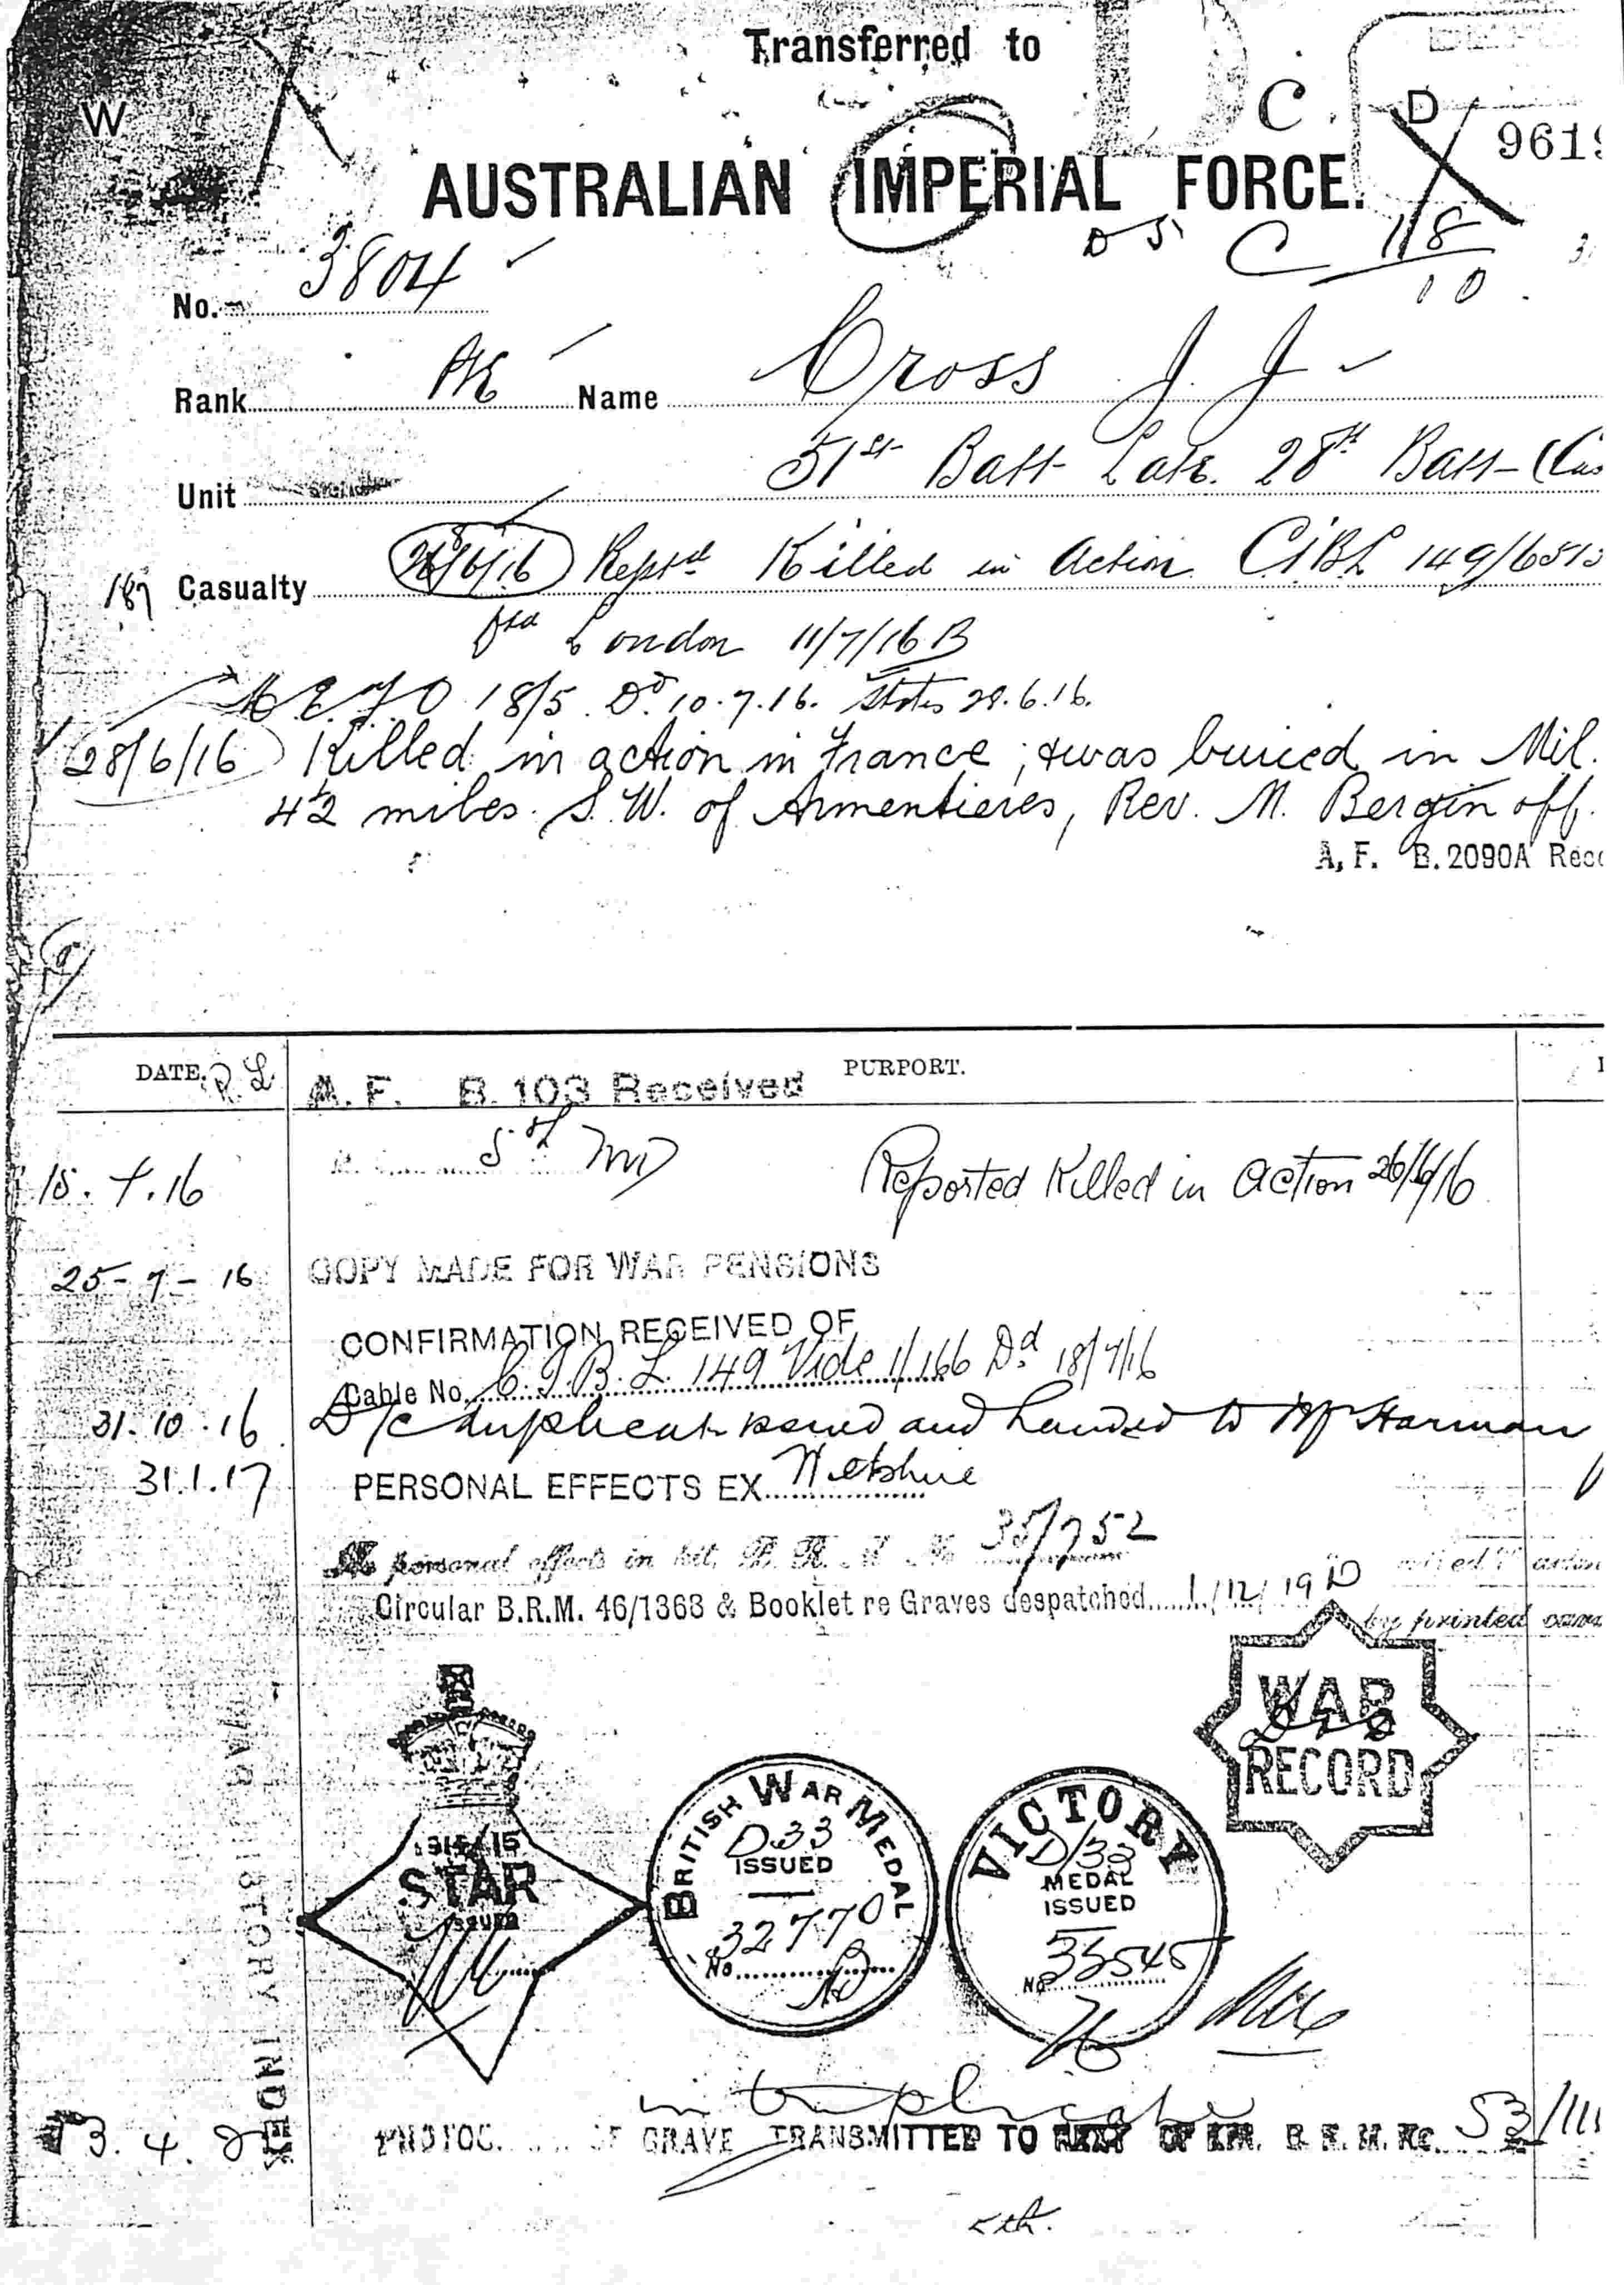 Transferred to
W
C. D 9619
AUSTRALIAN IMPERIAL FORCE.
C 118
10
No. 3804
Rank Pte Name Cross J. J.
Unit 51st Batt Late 28th Batt
187 Casualty 28/6/16 Reptd Killed in Action CIBL 149/
London 11/7/16 B
18/5 Dd 10.7.16. States 28.6.16.
28/6/16 Killed in action in France, & was buried in Mil.
4½ miles S.W. of Armentieres, Rev. M. Bergin off.
A.F. B.2090A
DATE. PURPORT.
A.F. B.103 Received
15.7.16 Reported Killed in Action 26/6/16
25-7-16 COPY MADE FOR WAR PENSIONS
CONFIRMATION RECEIVED OF
Cable No. C.I.B.L. 149 Vide 1/166 Dd 18/7/16
31.10.16 D/c duplicate issued and handed to Mr Harman
31.1.17 PERSONAL EFFECTS EX Wiltshire
No personal effects in kit. B.R.M. No 35/752
Circular B.R.M. 46/1363 & Booklet re Graves despatched 1/12/19
by printed
WAR
RECORD
1914/15
STAR
ISSUED
BRITISH WAR MEDAL
D33
ISSUED
32770
No
VICTORY
D/33
MEDAL
ISSUED
No
WAR HISTORY INDEX
in triplicate
OF GRAVE TRANSMITTED TO NEXT OF KIN. B.R.M. No. 53/
5th.